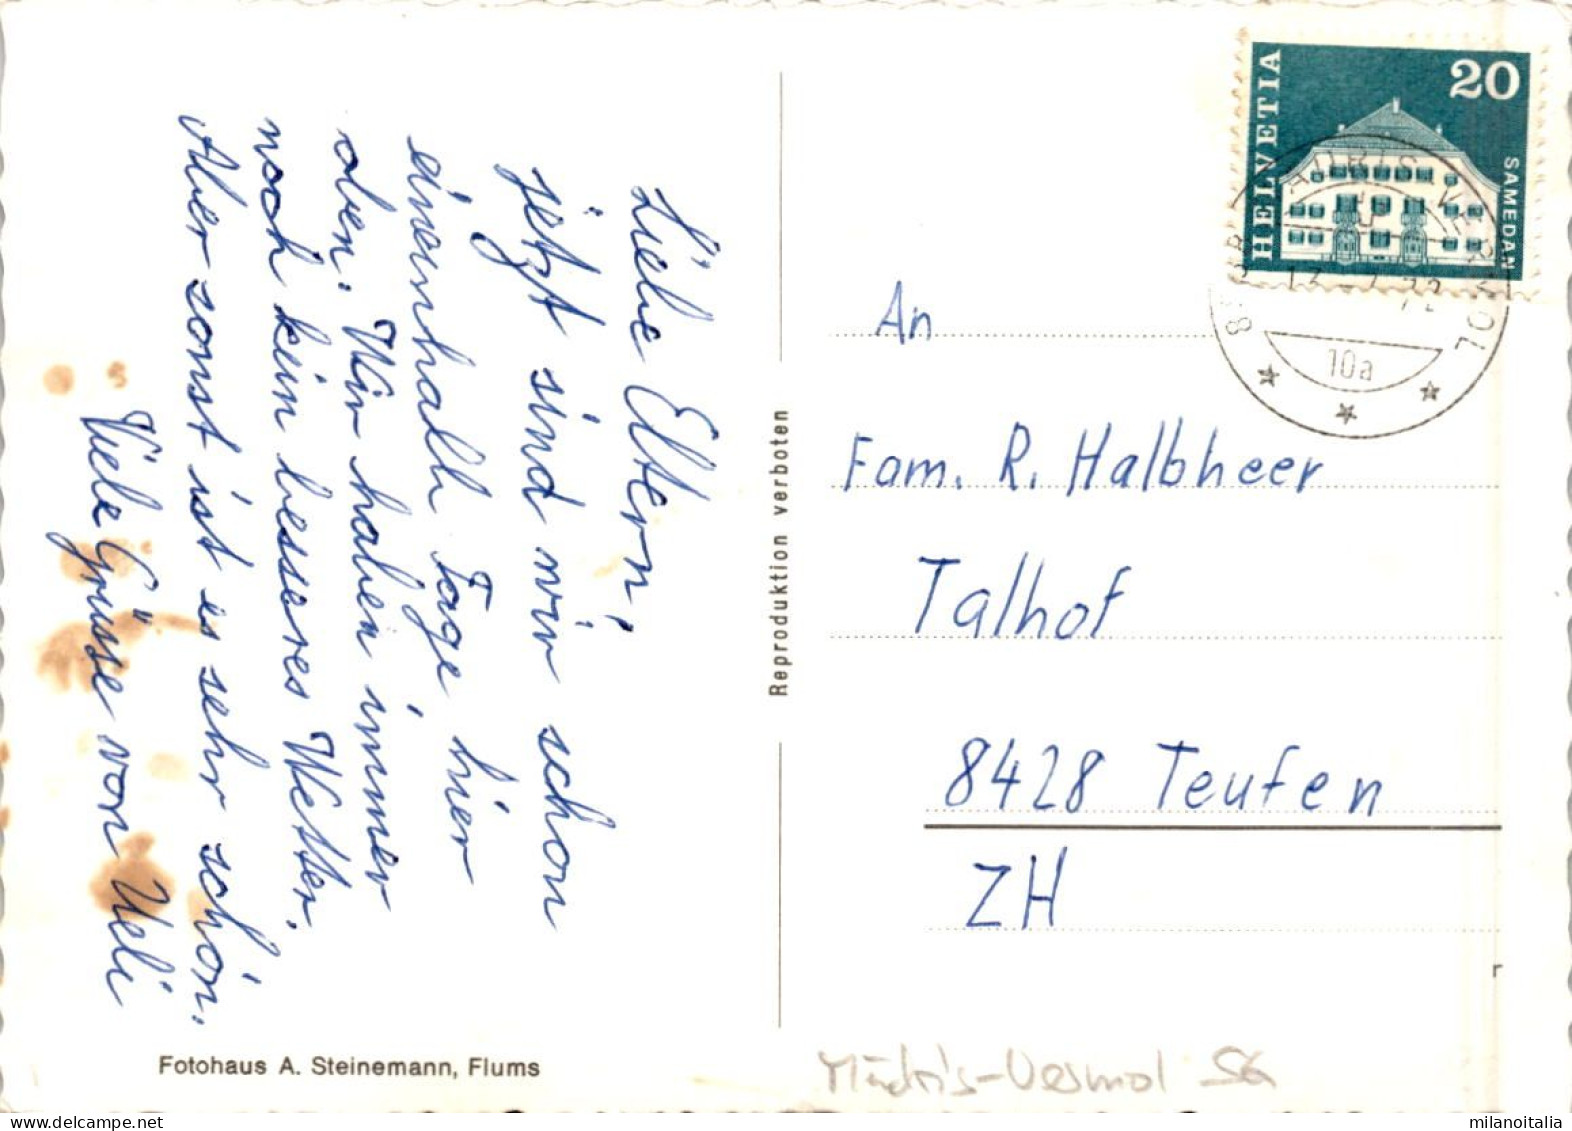 Liebe Eltern!
jetzt sind wir schon
eineinhalb Tage hier
oben. Wir haben immer
noch kein besseres Wetter.
Aber sonst ist es sehr schön.
Viele Grüsse von Ueli
Fotohaus A. Steinemann, Flums
Reproduktion verboten
HELVETIA
20
SAMEDAN
10a
An
Fam. R. Halbheer
Talhof
8428 Teufen
ZH
Mädris-Vermol SG
milanoitalia